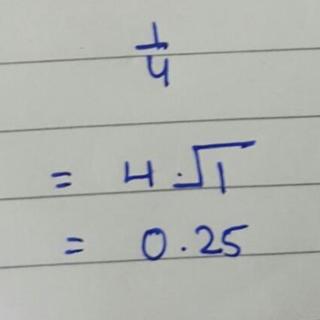 1/4
= 4.√1
= 0.25